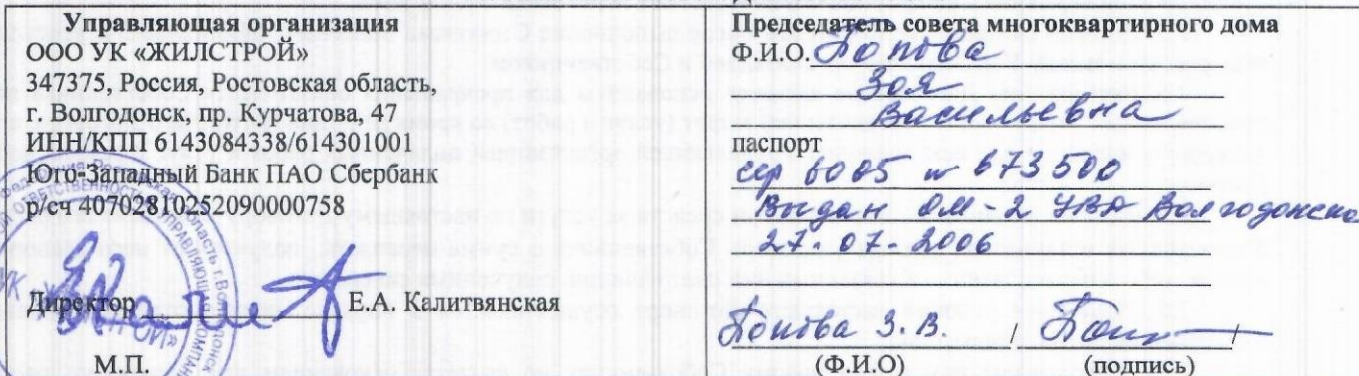 Управляющая организация
ООО УК «ЖИЛСТРОЙ»
347375, Россия, Ростовская область,
г. Волгодонск, пр. Курчатова, 47
ИНН/КПП 6143084338/614301001
Юго-Западный Банк ПАО Сбербанк
р/сч 40702810252090000758
Директор Е.А. Калитвянская
М.П.
Председатель совета многоквартирного дома
Ф.И.О. Попова
Зоя
Васильевна
паспорт
сер 6005 № 673500
Выдан ОМ-2 УВД Волгодонска
27-07-2006
Попова З.В. /
(Ф.И.О) (подпись)